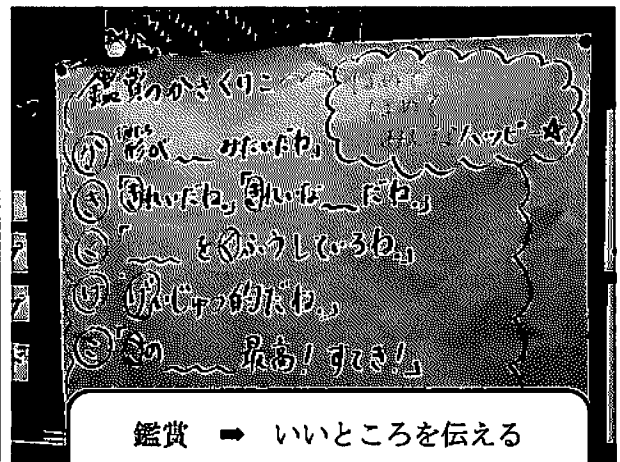 鑑賞のかきくけこ
ハッピー☆
か「形が__みたいだね。」
き「きれいだね。」「きれいな__だね。」
く「__をくふうしているね。」
け「げいじゅつ的だね。」
こ「この__最高！すてき！」
鑑賞 ➡ いいところを伝える